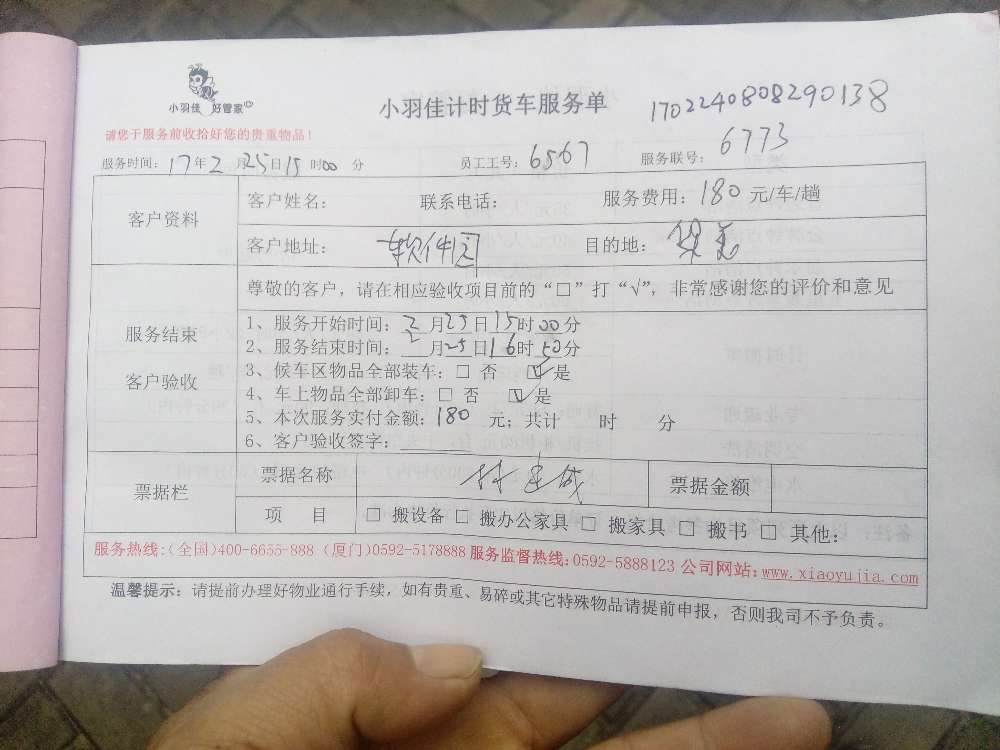 小羽佳 好管家
小羽佳计时货车服务单
1702240808290138
请您于服务前收拾好您的贵重物品!
服务时间: 17年2月25日15时00分 员工工号: 6567 服务联号: 6773
客户资料
客户姓名: 联系电话: 服务费用: 180元/车/趟
客户地址: 软件园 目的地:
服务结束
客户验收
尊敬的客户,请在相应验收项目前的“□”打“√”,非常感谢您的评价和意见
1、服务开始时间: 2月25日15时00分
2、服务结束时间: 2月25日16时50分
3、候车区物品全部装车: □ 否 ☑ 是
4、车上物品全部卸车: □ 否 ☑ 是
5、本次服务实付金额: 180 元; 共计 时 分
6、客户验收签字:
票据栏
票据名称 票据金额
项 目 □ 搬设备 □ 搬办公家具 □ 搬家具 □ 搬书 □ 其他:
服务热线:(全国)400-6655-888 (厦门)0592-5178888 服务监督热线:0592-5888123 公司网站:www.xiaoyujia.com
温馨提示: 请提前办理好物业通行手续,如有贵重、易碎或其它特殊物品请提前申报,否则我司不予负责。